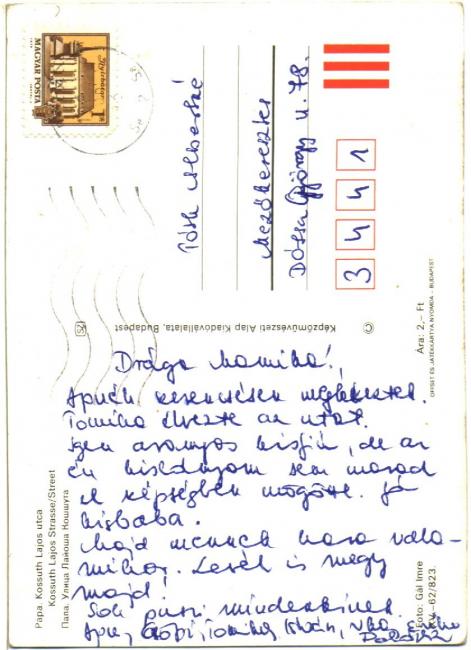 MAGYAR POSTA
Tóth Albertné
Mezőkeresztes
Dózsa György u. 78.
3 4 4 1
Képzőművészeti Alap Kiadóvállalata, Budapest
©
Ára: 2,– Ft
OFFSET ÉS JÁTÉKKÁRTYA NYOMDA – BUDAPEST
Drága Mamika!
Apuék szerencsésen megérkeztek.
Tomika élvezte az utat.
Igen aranyos kisfiú, de az
én kislányom sem marad
el képségben mögötte. Jó
kisbaba.
Majd megyünk haza vala-
mikor. Levél is megy
majd!
Sok puszi mindenkinek
Apu, Tomika, István
Papa. Kossuth Lajos utca
Kossuth Lajos Strasse/Street
Папа. Улица Лайоша Кошшута
Foto: Gál Imre
62/823.